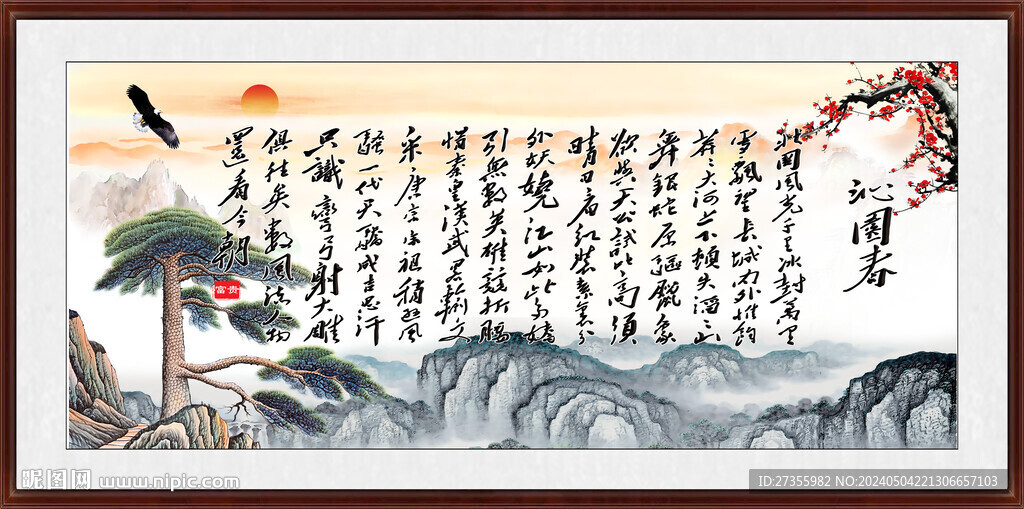 沁園春
北國风光千里冰封萬里
雪飄望长城内外惟餘
莽〻大河上下頓失滔〻山
舞銀蛇原驅蠟象
欲與天公試比高須
晴日看红装素裹分
外妖嬈江山如此多嬌
引無數英雄競折腰
惜秦皇漢武略輸文
采唐宗宋祖稍遜风
騷一代天驕成吉思汗
只識彎弓射大雕
俱往矣數風流人物
還看今朝
富贵
昵图网 www.nipic.com
ID:27355982 NO:20240504221306657103